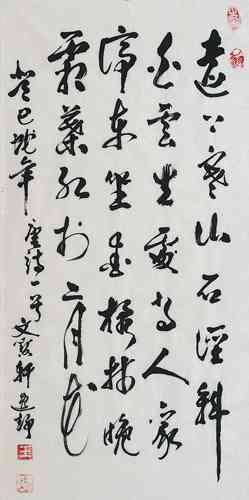 遠上寒山石徑斜
白雲生處有人家
停車坐愛楓林晚
霜葉紅於二月花
癸巳蛇年 唐詩一首 文軒